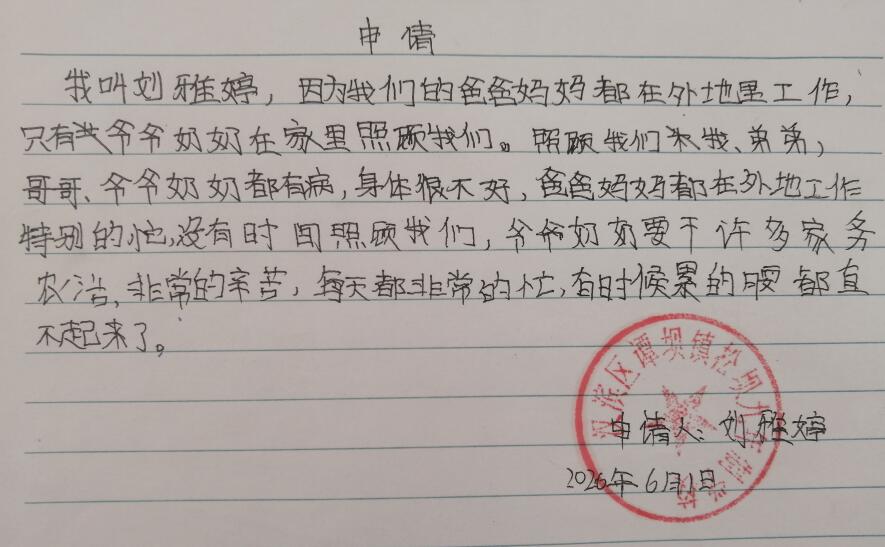 申请
我叫刘雅婷，因为我们的爸爸妈妈都在外地里工作，
只有我爷爷奶奶在家里照顾我们。照顾我们和我、弟弟，
哥哥、爷爷奶奶都有病，身体很不好，爸爸妈妈都在外地工作
特别的忙，没有时间照顾我们，爷爷奶奶要干许多家务
农活，非常的辛苦，每天都非常的忙，有时候累的腰都直
不起来了。
汉滨区谭坝镇松坝九年制学校
申请人：刘雅婷
2026年6月1日